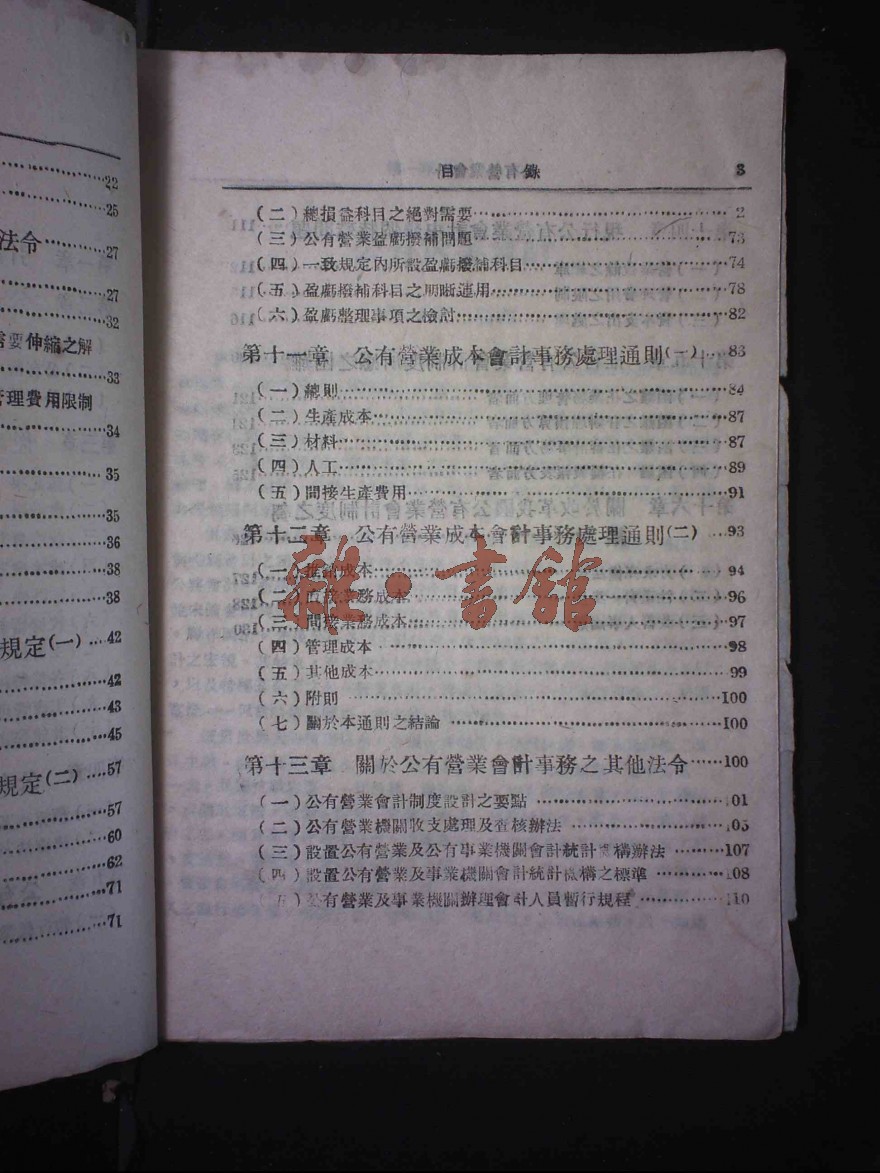 22
25
法令 27
27
32
需要伸縮之解
33
管理費用限制
34
35
35
36
38
38
規定(一) 42
42
43
45
規定(二) 57
57
60
62
71
71
目錄 3
(二)總損益科目之絕對需要 2
(三)公有營業盈虧撥補問題 73
(四)一致規定內所設盈虧撥補科目 74
(五)盈虧撥補科目之明晰運用 78
(六)盈虧整理事項之檢討 82
第十一章 公有營業成本會計事務處理通則(一) 83
(一)總則 84
(二)生產成本 87
(三)材料 87
(四)人工 89
(五)間接生產費用 91
第十二章 公有營業成本會計事務處理通則(二) 93
(一)推銷成本 94
(二)直接業務成本 96
(三)間接業務成本 97
(四)管理成本 98
(五)其他成本 99
(六)附則 100
(七)關於本通則之結論 100
第十三章 關於公有營業會計事務之其他法令 100
(一)公有營業會計制度設計之要點 101
(二)公有營業機關收支處理及查核辦法 105
(三)設置公有營業及公有事業機關會計統計機構辦法 107
(四)設置公有營業及事業機關會計統計機構之標準 108
(五)公有營業及事業機關辦理會計人員暫行規程 110
雜·書館